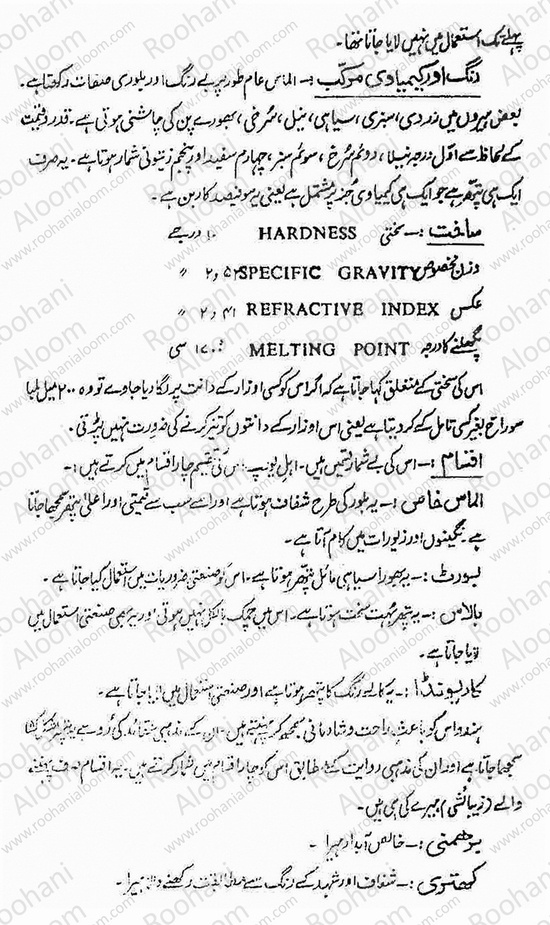 پہلے تک استعمال میں نہیں لایا جاتا تھا۔
رنگ اور کیمیاوی مرکب :- الماس عام طور پر بے رنگ اور بلوری صفات رکھتا ہے۔
بعض ہیروں میں زردی، سبزی، سیاہی، نیل، سُرخی، بھورے پن کی چاشنی ہوتی ہے۔ قدر و قیمت
کے لحاظ سے اوّل درجہ نیلا، دوئم سُرخ، سوئم سبز، چہارم سفید اور پنجم زیتونی شمار ہوتا ہے۔ یہ صرف
ایک ہی پتھر ہے جو ایک ہی کیمیاوی جُز پر مشتمل ہے یعنی یہ سو فیصد کاربن ہے۔
ساخت :- سختی HARDNESS ۱۰ درجے
وزن مخصوص SPECIFIC GRAVITY ۳،۵۲ "
عکس REFRACTIVE INDEX ۲،۴۱ "
پگھلنے کا درجہ MELTING POINT سی
اس کی سختی کے متعلق کہا جاتا ہے کہ اگر اس کو کسی اوزار کے دانت پر لگا دیا جاوے تو وہ ۲۰۰ میل لمبا
سوراخ بغیر کسی تامل کے کر دیتا ہے یعنی اس اوزار کے دانتوں کو تیز کرنے کی ضرورت نہیں پڑتی۔
اقسام :- اس کی بے شمار قسمیں ہیں۔ اہلِ یورپ اس کی تقسیم چار اقسام میں کرتے ہیں :-
الماس خاص :- یہ بلور کی طرح شفاف ہوتا ہے اور اسے سب سے قیمتی اور اعلیٰ پتھر سمجھا جاتا
ہے۔ نگینوں اور زیورات میں کام آتا ہے۔
بورٹ :- یہ بھورا سیاہی مائل پتھر ہوتا ہے۔ اس کو صنعتی ضروریات میں استعمال کیا جاتا ہے۔
بالاس :- یہ پتھر بہت سخت ہوتا ہے۔ اس میں چمک بالکل نہیں ہوتی اور یہ بھی صنعتی استعمال میں
لایا جاتا ہے۔
کاربونڈا :- یہ کالے رنگ کا پتھر ہوتا ہے اور صنعتی استعمال میں لایا جاتا ہے۔
ہندو اس کو باعث راحت و شادمانی سمجھ کر پہنتے ہیں۔ ان کے مذہبی عقائد کی رُو سے یہ پتھر
سمجھا جاتا ہے اور ان کی مذہبی روایت کے مطابق اس کو چار اقسام میں شمار کرتے ہیں۔ یہ اقسام صرف پہننے
والے (زیبائشی) ہیرے کی ہی ہیں۔
برھمنی :- خالص آبدار ہیرا۔
کھتری :- شفاف اور شہد کے رنگ سے مطابقت رکھنے والا ہیرا۔
Roohani Aloom
www.roohanialoom.com